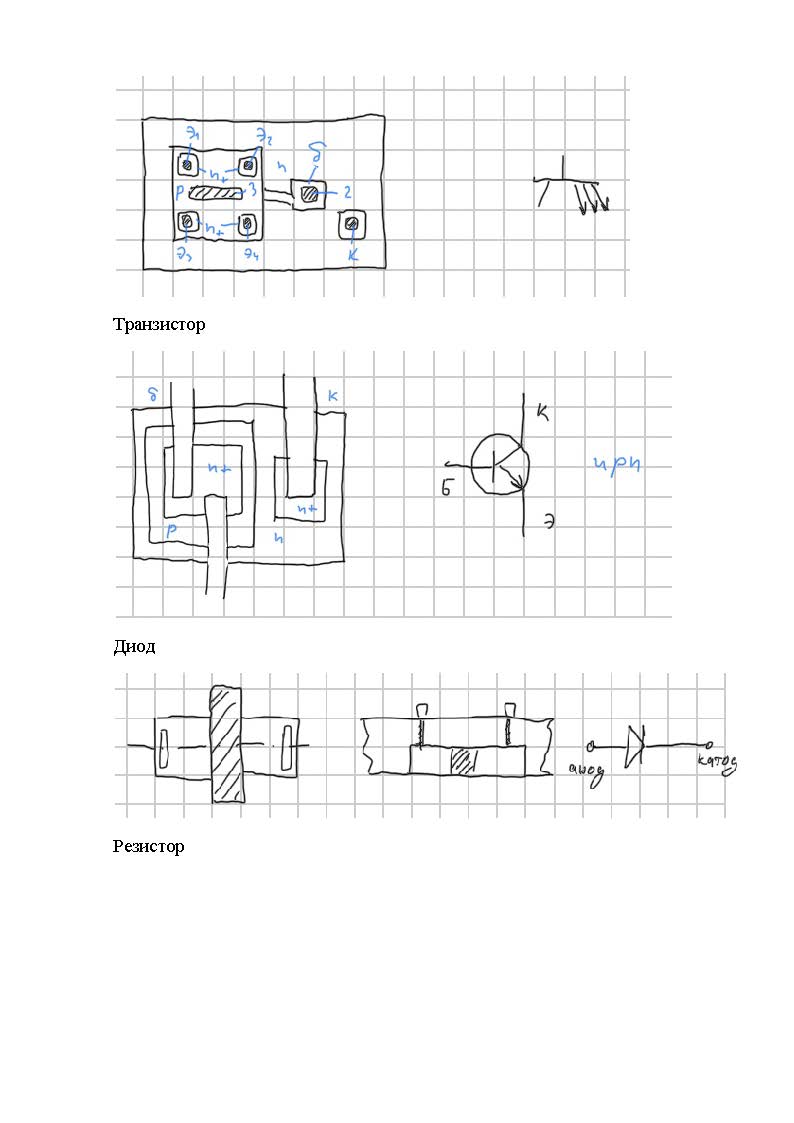 Э1 Э2 б
n+ n
р 3 2
n+
Э3 Э4 К
Транзистор
б К
К
n+ npn
Б
n+
р n Э
Диод
анод катод
Резистор